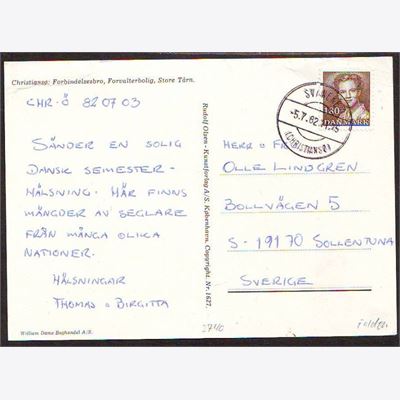 Christiansø: Forbindelsesbro, Forvalterbolig, Store Tårn.
CHR-Ö 820703
SÄNDER EN SOLIG
DANSK SEMESTER-
HÄLSNING. HÄR FINNS
MÄNGDER AV SEGLARE
FRÅN MÅNGA OLIKA
NATIONER.
HÄLSNINGAR
THOMAS o BIRGITTA
William Dams Boghandel A/S.
Rudolf Olsen - Kunstforlag A/S. København. Copyright. Nr. 1627.
SVANEKE
-5.7.82
(CHRISTIANSØ)
180
DANMARK
HERR o FR
OLLE LINDGREN
BOLLVÄGEN 5
S-19170 SOLLENTUNA
SVERIGE